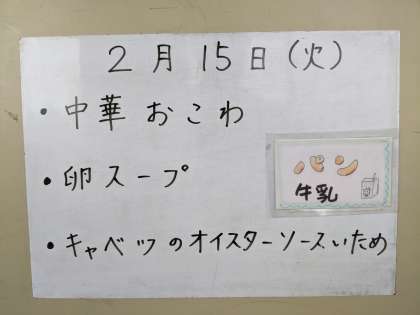 2月15日(火)
・中華おこわ
・卵スープ
パン
牛乳
・キャベツのオイスターソースいため